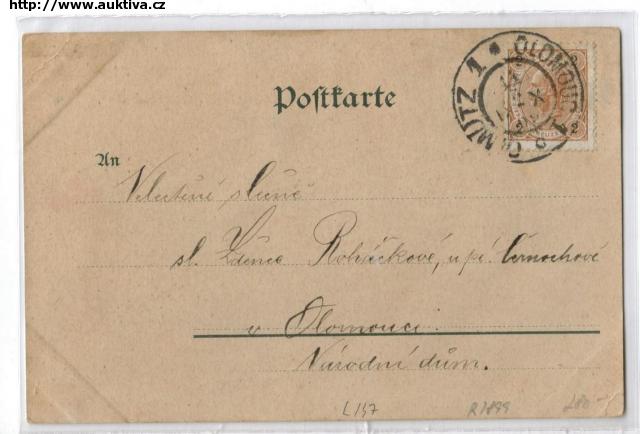 http://www.auktiva.cz
OLMÜTZ 1 * OLOMOUC
2
Postkarte
An
Velectěné slečně
sl. Zdence Roháčkové, u pí. Černochové
v Olomouci.
Národní dům.
L137
R1899